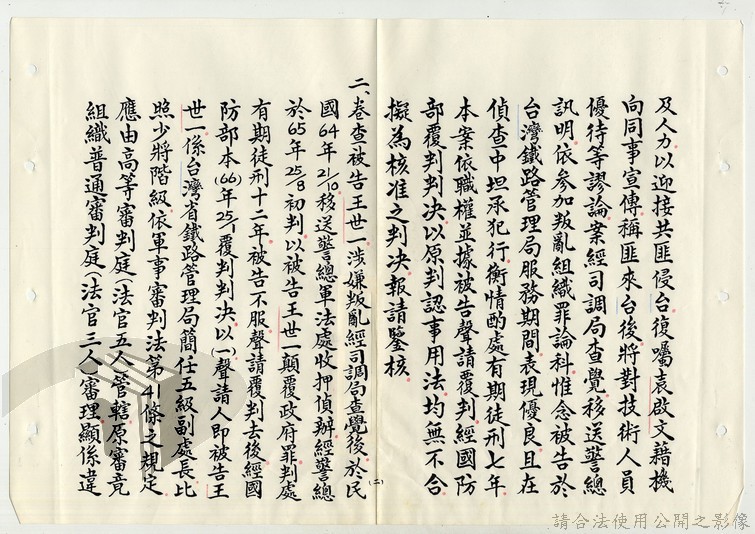 及人力以迎接共匪侵台復囑袁啟文藉機
向同事宣傳稱匪來台後將對技術人員
優待等謬論案經司調局查覺移送警總
訊明依參加叛亂組織罪論科惟念被告於
台灣鐵路管理局服務期間表現優良且在
偵查中坦承犯行衡情酌處有期徒刑七年
本案依職權並據被告聲請覆判經國防
部覆判判決以原判認事用法均無不合
擬為核准之判決報請鑒核
二、卷查被告王世一涉嫌叛亂經司調局查覺後於民
國64年21/10移送警總軍法處收押偵辦經警總
於65年25/8初判以被告王世一顛覆政府罪判處
有期徒刑十二年被告不服聲請覆判去後經國
防部本(66)年25/1覆判判決以(一)聲請人即被告王
世一係台灣省鐵路管理局簡任五級副處長比
照少將階級依軍事審判法第41條之規定
應由高等審判庭(法官五人)管轄原審竟
組織普通審判庭(法官三人)審理顯係違
(二)
請合法使用公開之影像